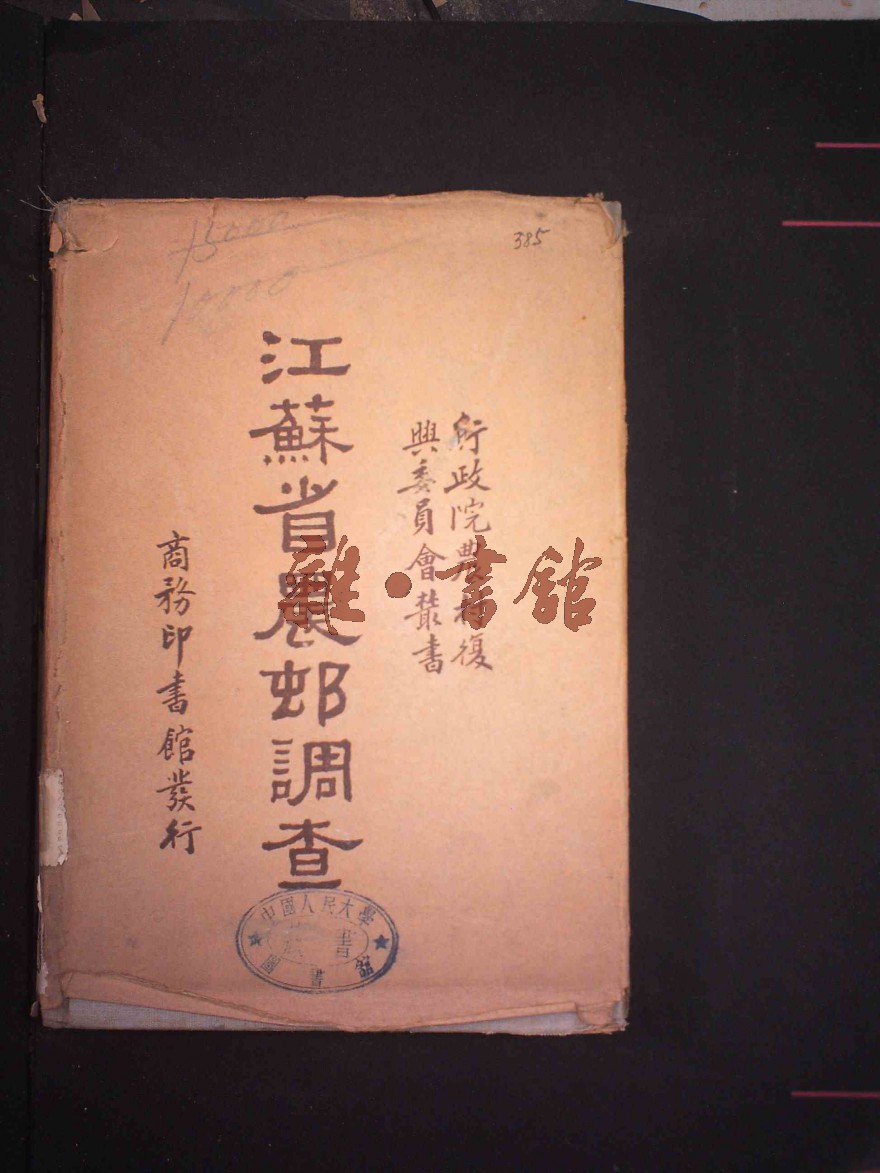 15000
10000
385
行政院農村復
興委員會叢書
江蘇省農邨調查
商務印書館發行
雜·書館
中國人民大學
圖書館
藏書